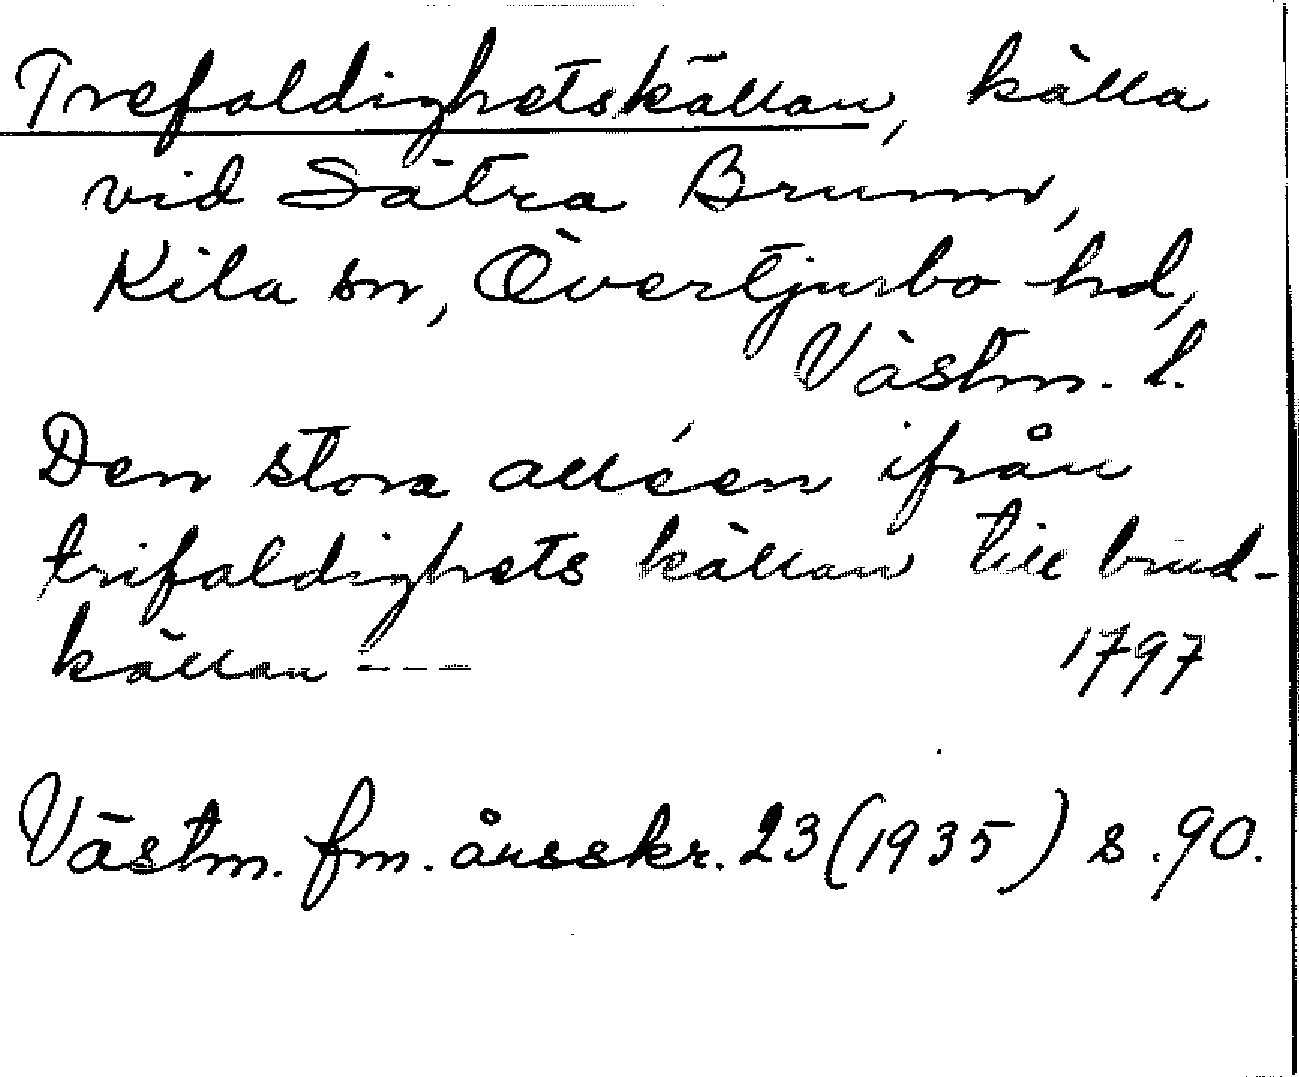 Trefaldighetskällan, källa
vid Sätra Brunn,
Kila sn, Övertjurbo hd,
Västm. l.
Den stora alléen ifrån
trifaldighets källan till brud-
källan ---- 1797
Västm. fm. årsskr. 23 (1935) s. 90.